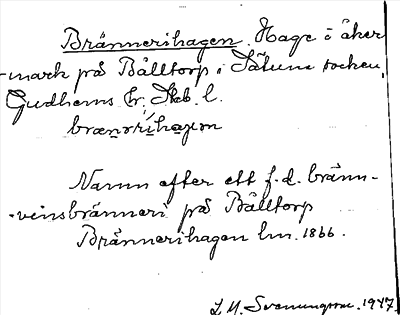 Brännerihagen. Hage i åker
-mark på Bålltorp i Sätuna socken,
Gudhems hr, Skb. l.
brænərihaɡən
Namn efter ett f.d. bränn-
-vinsbränneri på Bålltorp
Brännerihagen lm. 1866.
L. M. Svenungsson. 1947.